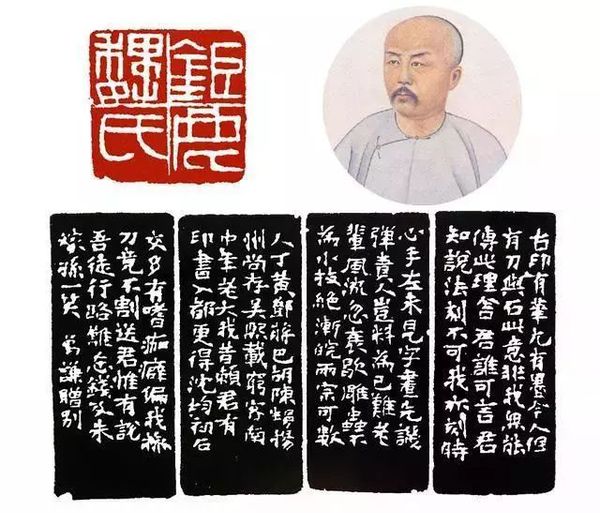 鉅鹿
魏氏
古印有筆尤有墨今人但
有刀與石此意非我無能
傳此理舍君誰可言君
知說法刻不可我亦刻時
心手左未見字畫先譏
彈責人豈料為己難老
輩風流忽衰歇雕蟲
為小技絕浙皖兩宗可數
人丁黃鄧蔣巴胡陳揚
州尚存吳熙載窮客南
中年老大我昔贈君有
印書入都更得沈均初石
交多有嗜痂癖偏我操
刀竟不割送君惟有說
吾徒行路難錢未
稼孫一笑 謙贈別